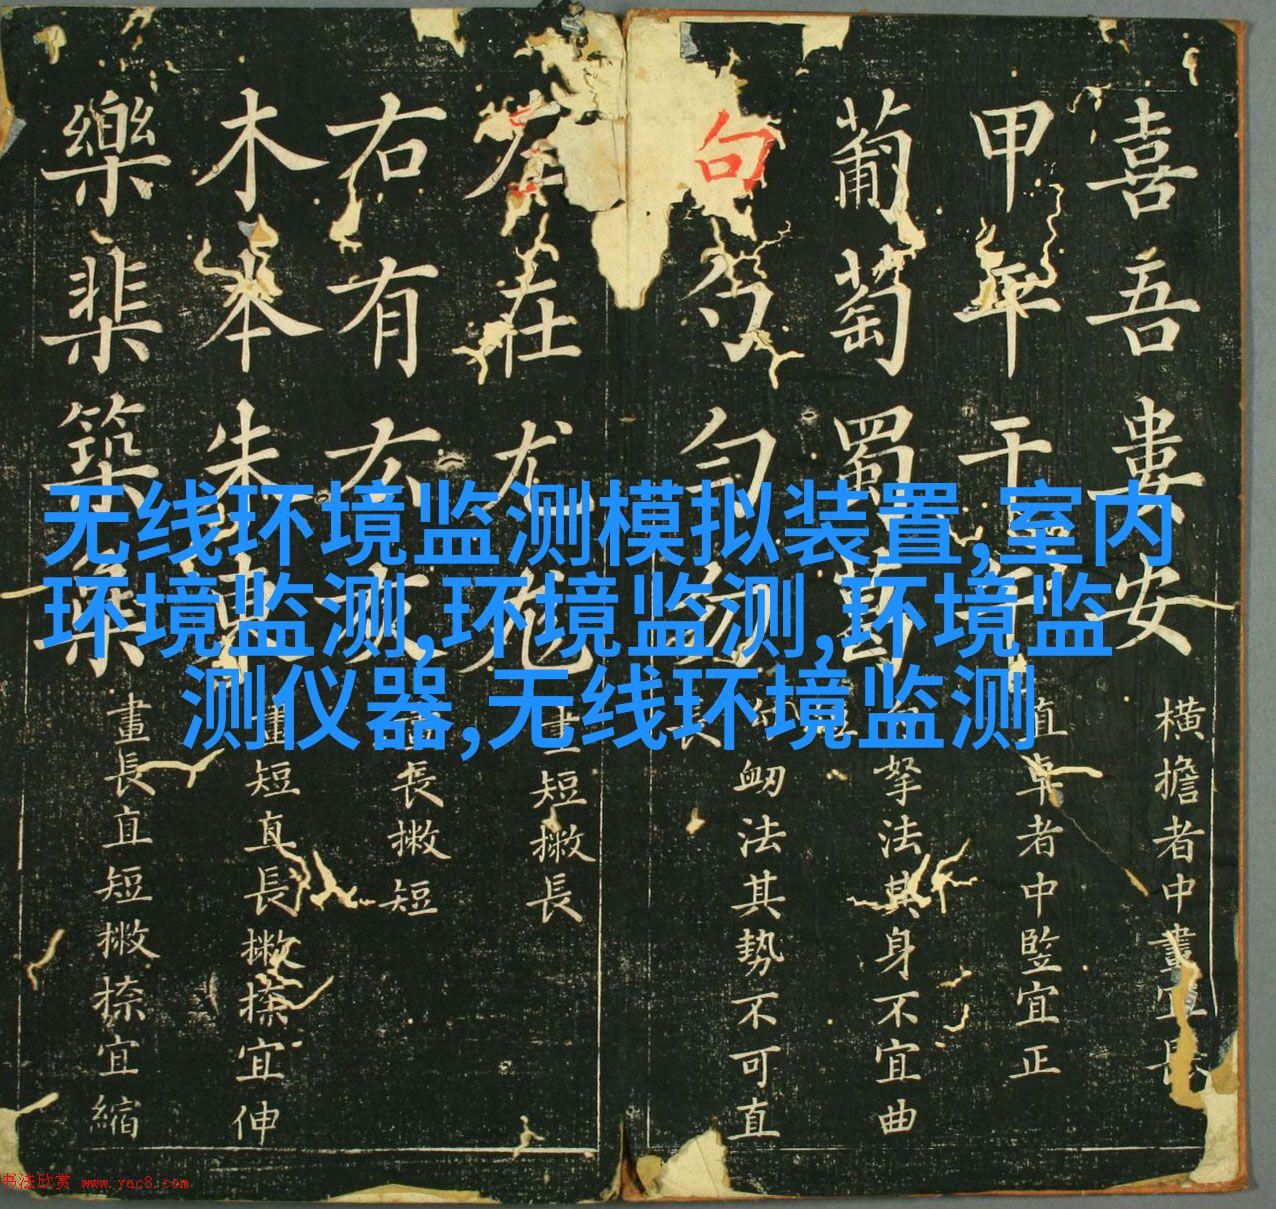 无线环境监测模拟装置,室内
环境监测,环境监测,环境监
测仪器,无线环境监测
喜吾婁安
横擔者中畫宜
甲平干
直卓者中竪宜正
葡萄蜀
拏法其身不宜曲
句勹勻
衂法其勢不可直
左在尤尨
短撇長
右有
長撇短
木本朱
畫短直長撇捺宜伸
樂棐築
畫長直短撇捺宜縮
书法欣赏 www.yac8.com